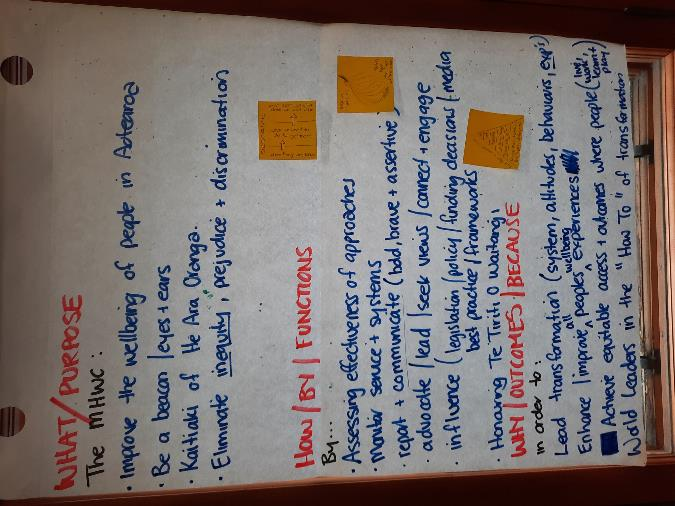 WHAT/PURPOSE
The MHWC:
• Improve the wellbeing of people in Aotearoa
• Be a beacon/eyes + ears
• Kaitiaki of He Ara Oranga.
• Eliminate inequity, prejudice + discrimination
HOW/BY/FUNCTIONS
By...
• Assessing effectiveness of approaches
• monitor service + systems
• report + communicate (bold, brave + assertive)
advocate/lead/seek views/connect + engage
• influence (legislation/policy/funding decisions/media
best practice/frameworks
• Honouring Te Tiriti O Waitangi,
WHY/OUTCOMES/BECAUSE
in order to:
Lead transformation (system, attitudes, behaviours, exp's)
Enhance/improve all peoples wellbeing experiences
Achieve equitable access + outcomes where people (live, work, learn + play)
World Leaders in the "How To" of transformation